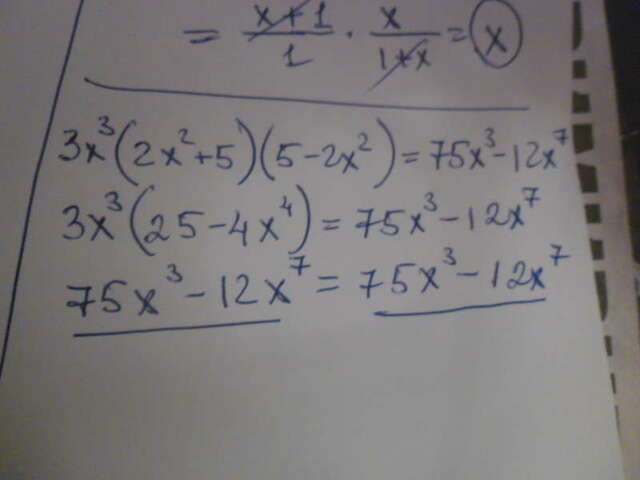 = x+1/1 · x/1+x = x
3x³(2x²+5)(5-2x²)=75x³-12x⁷
3x³(25-4x⁴)=75x³-12x⁷
75x³-12x⁷=75x³-12x⁷